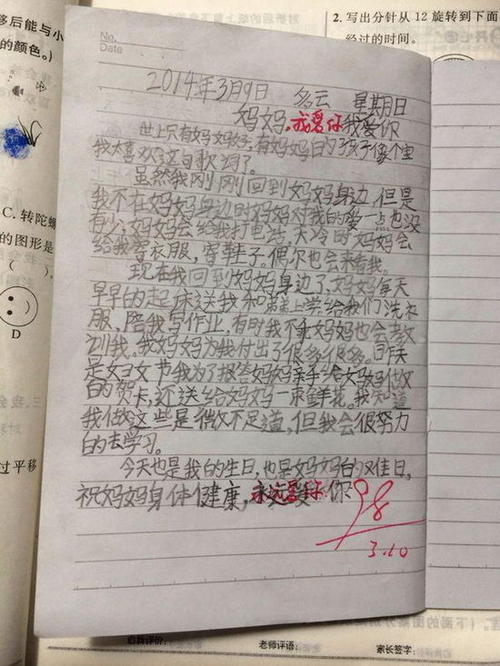 移后能与小
的颜色。)
C. 转陀螺
的图形是
( )。
D
过平移
2. 写出分针从 12 旋转到下面
经过的时间。
No.
Date
2014年3月9日 多云 星期日
妈妈,我爱你
世上只有妈妈好,有妈妈的孩子像个宝
我太喜欢这句歌词了。
虽然我刚刚回到妈妈身边,但是
我不在妈妈身边时妈妈对我的爱一点也没
有少,妈妈会给我打电话,天冷时妈妈会
给我寄衣服,寄鞋子。偶尔也会来看我。
现在我回到妈妈身边了,妈妈每天
早早的起床送我和弟弟上学给我们洗衣
服,陪我写作业,有时我不乖妈妈也会教
训我。我妈妈为我付出了很多很多。昨天
是妇女节我为了报答妈妈亲手给妈妈做
的贺卡,还送给妈妈一束鲜花。我知道
我做这些是微不足道,但我会很努力
的去学习。
今天也是我的生日,也是妈妈的
祝妈妈身体健康,永远爱你
98
3.10
老师评语:
家长签字: